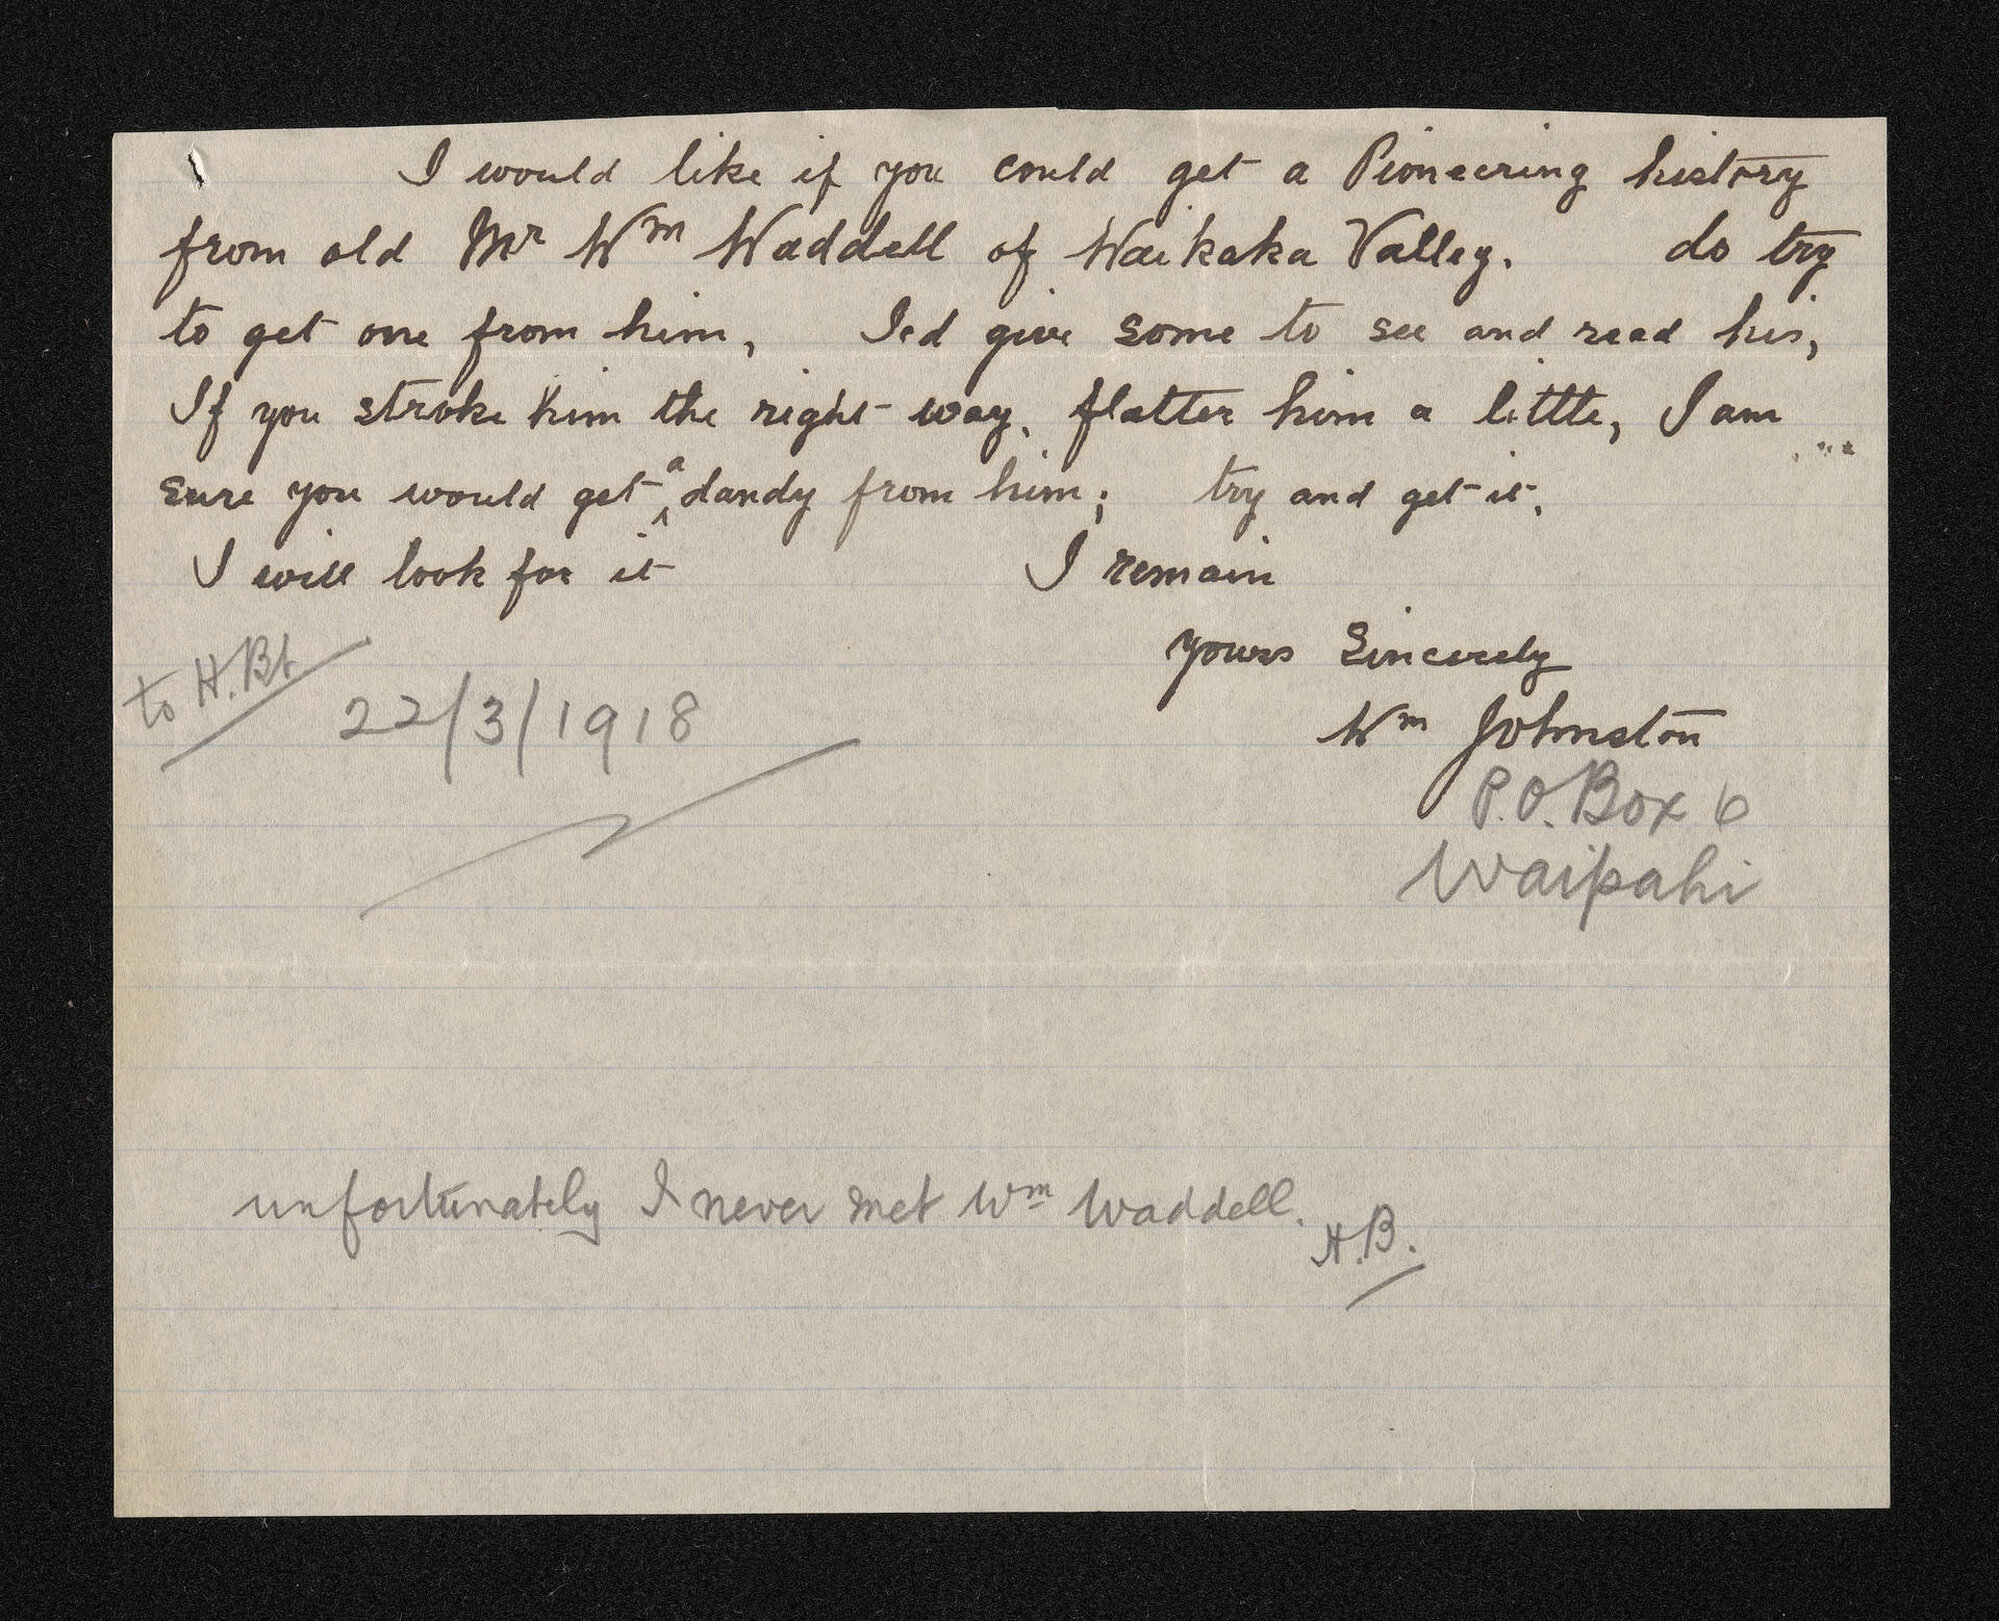 I would like if you could get a Pioneering history
from old Mr Wm Waddell of Waikaka Valley. do try
to get one from him, Ied give some to see and read his,
If you stroke him the right way, flatter him a little, I am
sure you would get a dandy from him; try and get it.
I will look for it I remain
yours Sincerely
Wm Johnston
P.O. Box 6
Waipahi
to H.Bt
22/3/1918
unfortunately I never met Wm Waddell.
H.B.